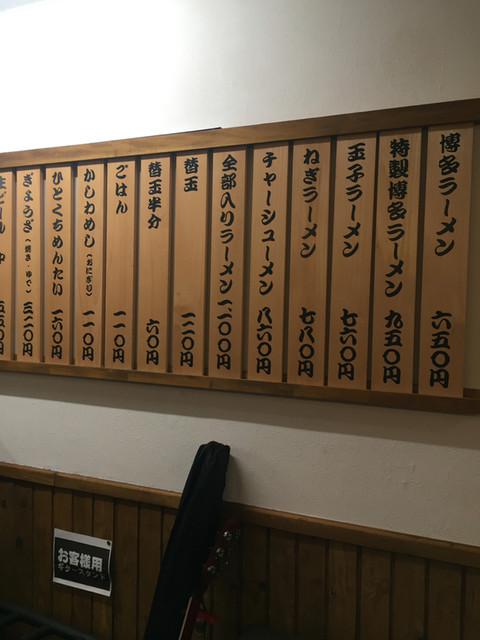 博多ラーメン 六五〇円
特製博多ラーメン 九五〇円
玉子ラーメン 七六〇円
ねぎラーメン 七八〇円
チャーシューメン 八六〇円
全部入りラーメン 一、二〇〇円
替玉 一二〇円
替玉半分 六〇円
ごはん 一一〇円
かしわめし（おにぎり） 一一〇円
ひとくちめんたい 一六〇円
ぎょうざ（焼き・ゆで） 三二〇円
生ビール 中 五五〇円
お客様用
ギタースタンド